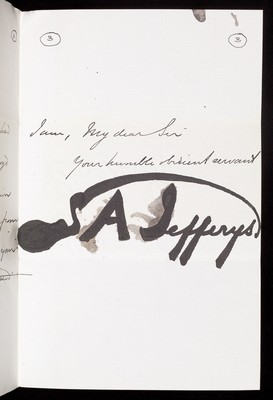 3 3
I am, My dear Sir
Your humble obedient servant
A Jefferys